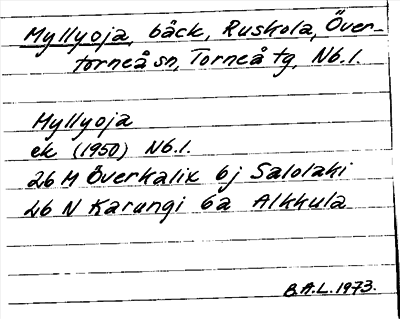 Myllyoja, bäck, Ruskola, Över-
torneå sn, Torneå tg, Nb.l.
Myllyoja
ek (1950) Nb.l.
26 M Överkalix 6j Salolaki
26 N Karungi 6a Alkkula
B.A.L. 1973.